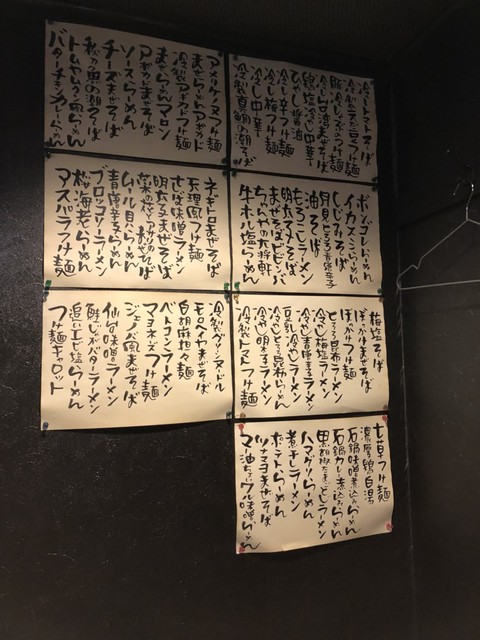 冷しトマトそば
冷製
つけ麺
豚冷しゃぶのつけ麺
冷し台湾まぜそば
鶏塩冷し中華
ひやし醤油
冷し梅つけ麺
冷し辛つけ麺
冷し中華
冷製真鯛の潮そば
アメリケーヌつけ麺
まぜらーめんアボカド
冷製アボカドつけ麺
アボカドまぜそば
まぜらーめんマロン
ソースらーめん
チーズまぜそば
秋刀魚の潮そば
トムヤムクン
らーめん
バターチキンカレーらーめん
ボンゴレらーめん
イカスミらーめん
しじみそば
月見とろろ
辛子
油そば
もろこしラーメン
明太まぜそば
まぜそばビビンバ
大将軒
牛ホル塩らーめん
ネギトロまぜそば
天理風つけ麺
さば味噌ラーメン
明太子まぜそば
菜の花とアサリのまぜそば
ムール貝らーめん
青唐辛子らーめん
ブロッコリーラーメン
桜海老らーめん
アスパラつけ麺
梅塩そば
ぼっかけまぜそば
ぼっかけつけ麺
とろろ昆布らーめん
冷やし梅塩ラーメン
冷やし青唐
らーめん
豆乳冷やしラーメン
冷やしとろろ昆布らーめん
冷やし明太らーめん
冷製トマトつけ麺
冷製グリーンヌードル
モロヘイヤまぜそば
白胡麻担々麺
ベーコンラーメン
マヨネーズつけ麺
ジェノバ風まぜそば
仙台味噌ラーメン
鮭しおバターラーメン
追いエビ塩らーめん
つけ麺キャロット
七草つけ麺
濃厚鶏白湯
石鍋味噌煮込みらーめん
石鍋カレー煮込みらーめん
黒胡椒たまごとじラーメン
ハマグリらーめん
煮干しラーメン
ポテトらーめん
ツナマヨまぜそば
マー油ちょいワル味噌らーめん